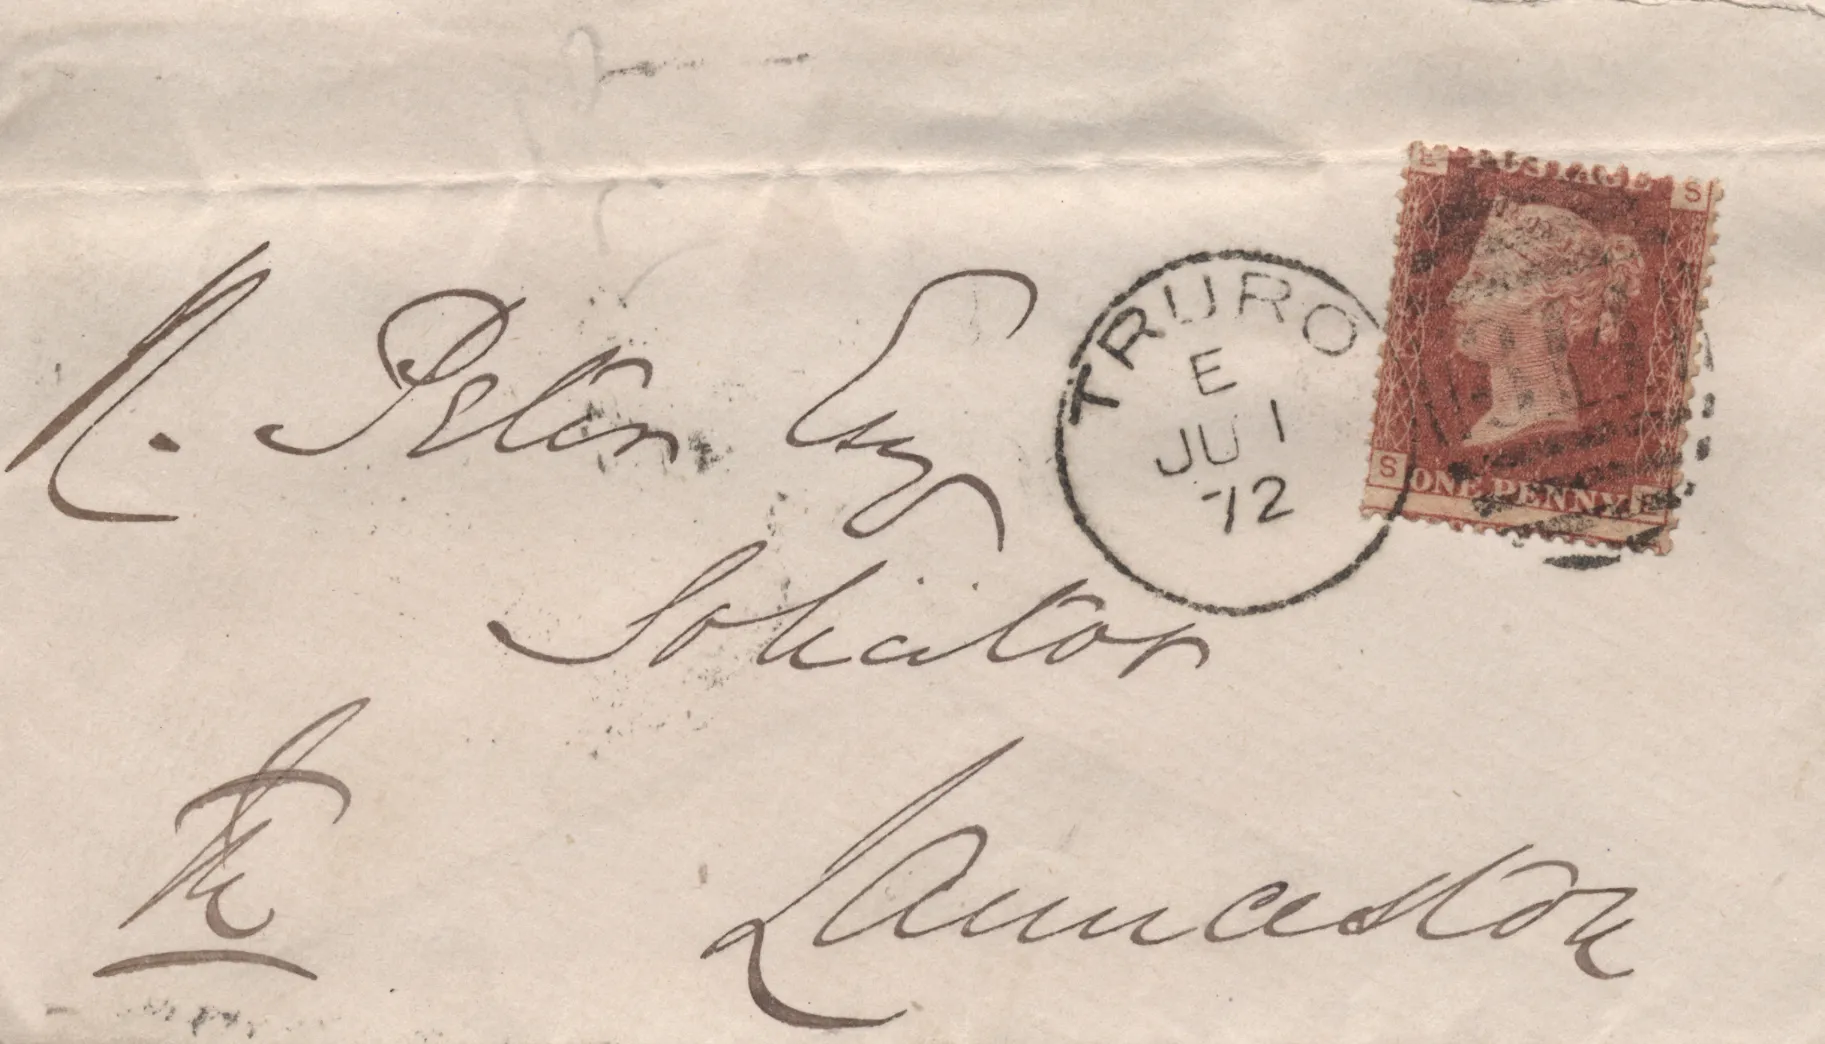 E POSTAGE S
S ONE PENNY E
TRURO
E
JU 1
72
R. Peter Esq
Solicitor
Launceston